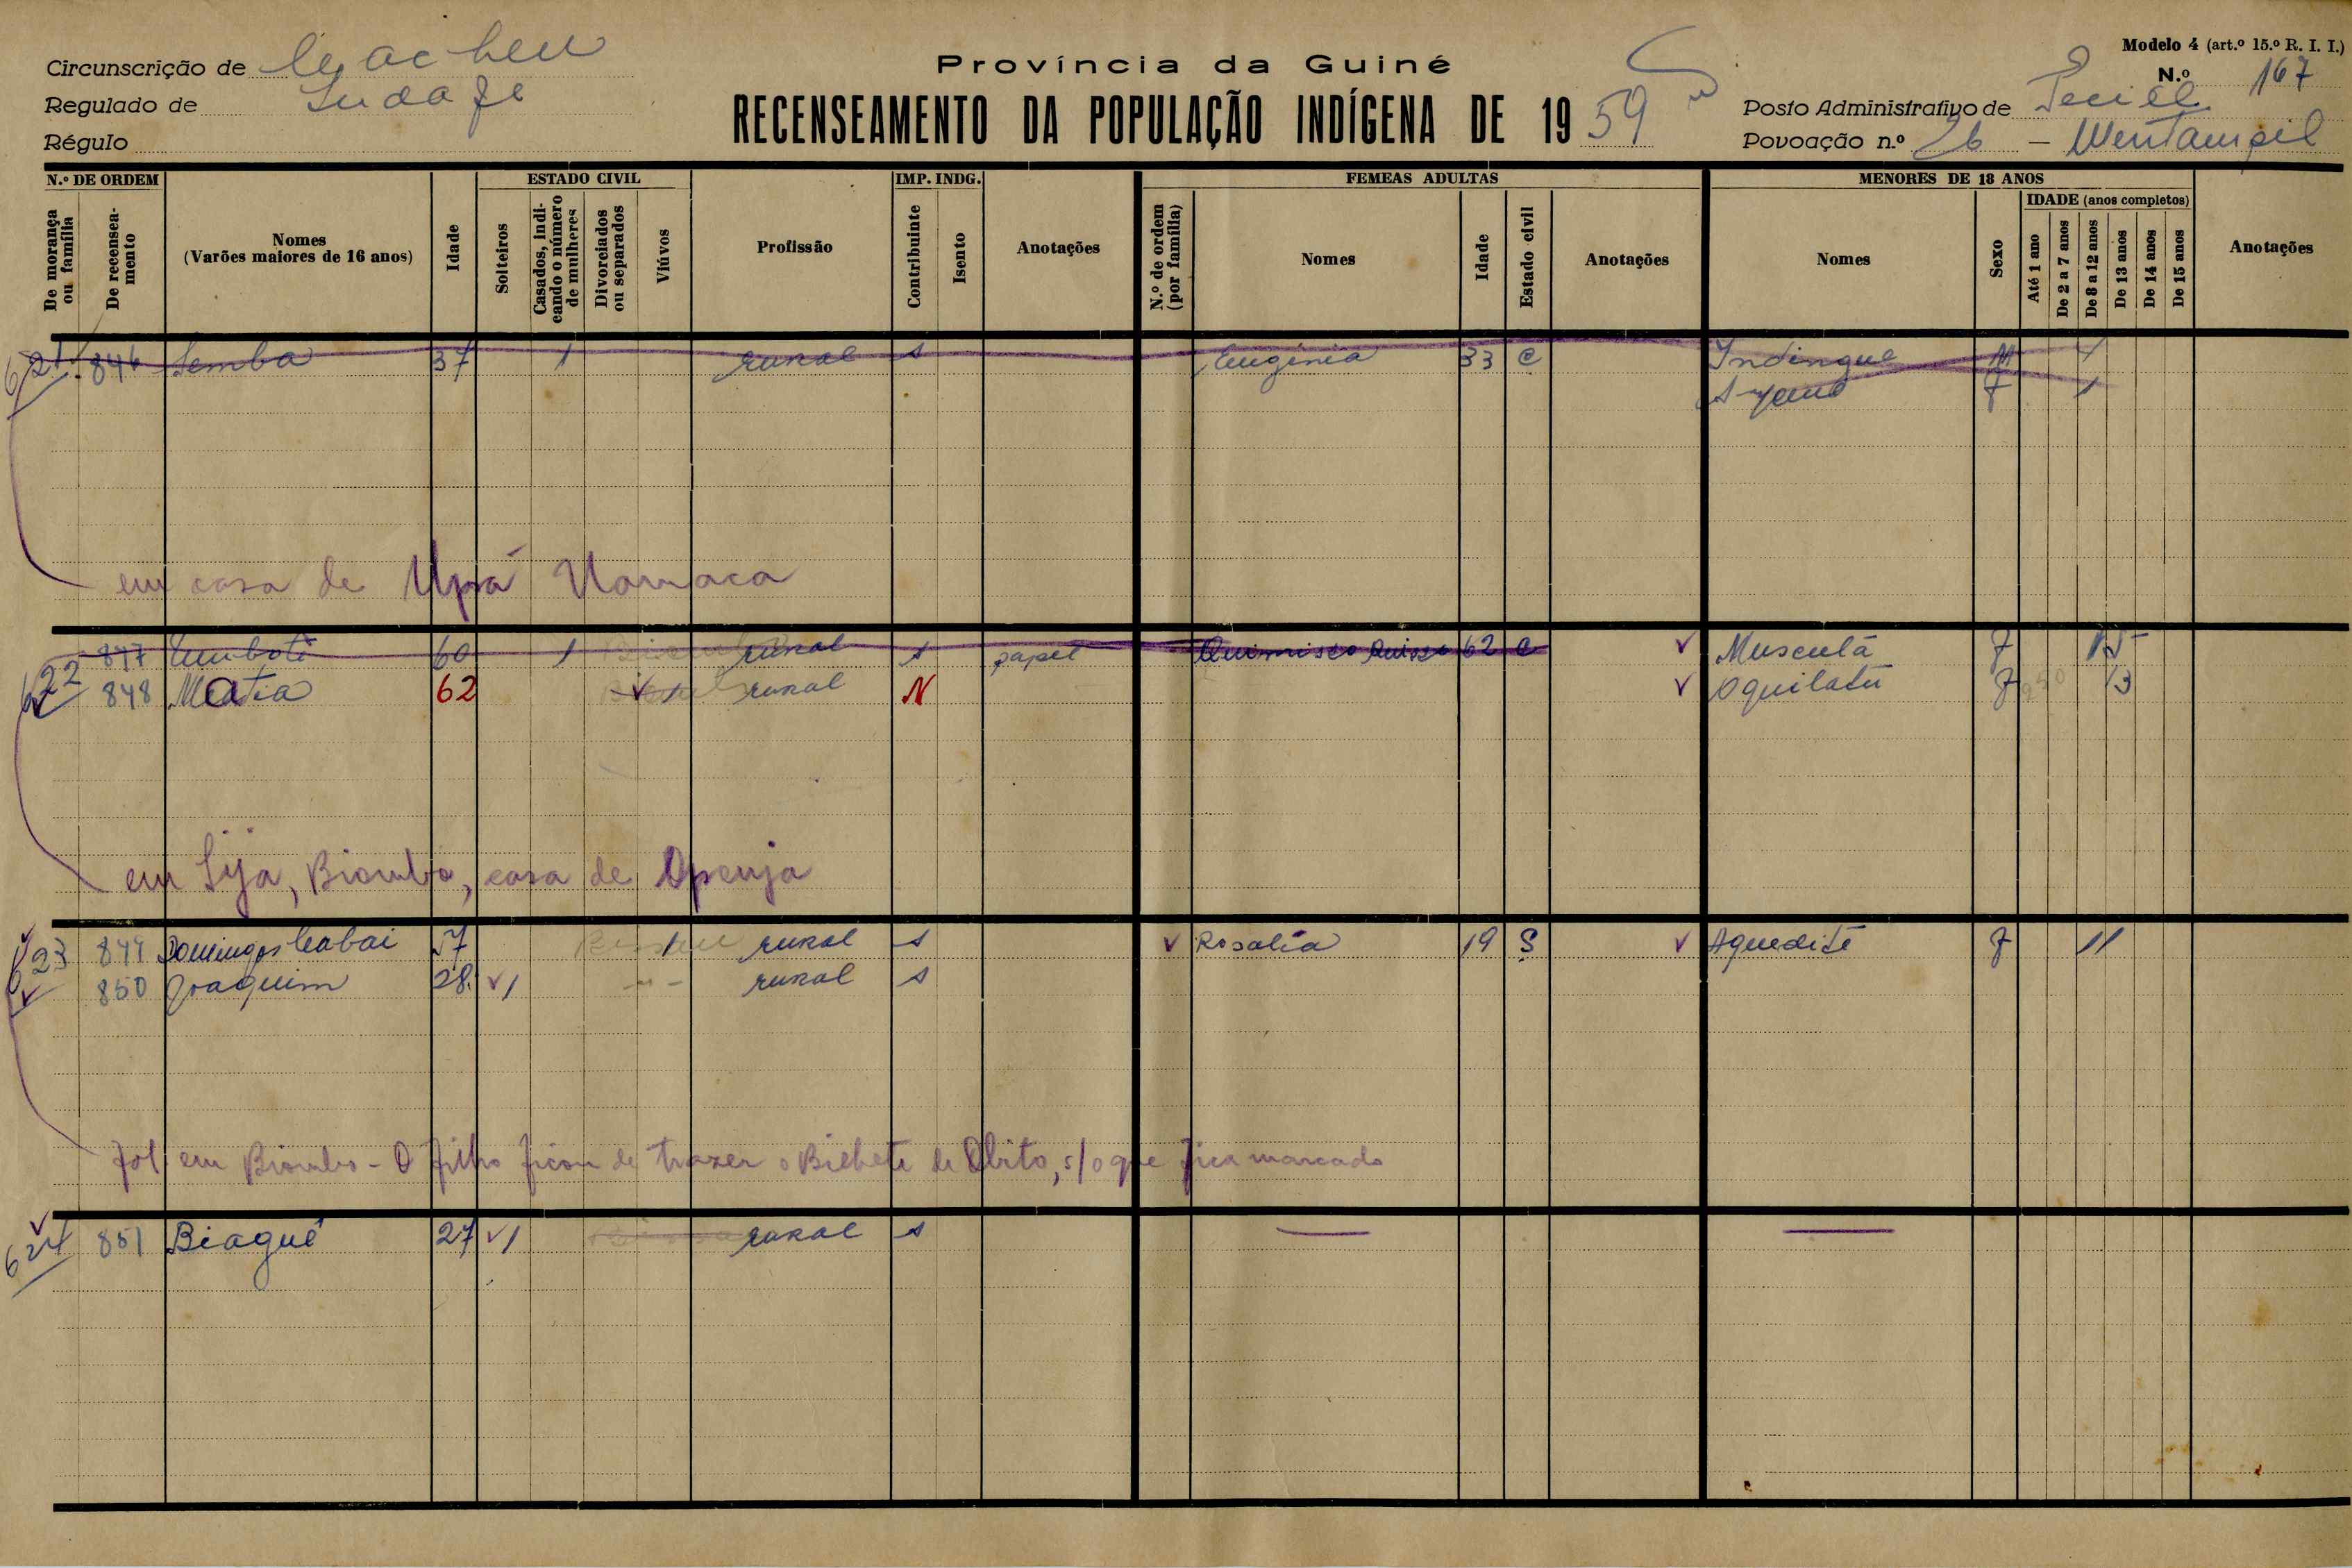 Modelo 4 (art.º 15.º R. I. I.)
Província da Guiné
N.º 167
Circunscrição de Cacheu
Regulado de
Régulo
RECENSEAMENTO DA POPULAÇÃO INDÍGENA DE 1959
Posto Administrativo de
Povoação n.º 26 –
N.º DE ORDEM
De morança ou família
De recenseamento
Nomes
(Varões maiores de 16 anos)
Idade
ESTADO CIVIL
Solteiros
Casados, indicando o número de mulheres
Divorciados ou separados
Viúvos
Profissão
IMP. INDG.
Contribuinte
Isento
Anotações
FEMEAS ADULTAS
N.º de ordem (por família)
Nomes
Idade
Estado civil
Anotações
MENORES DE 18 ANOS
Nomes
Sexo
IDADE (anos completos)
Até 1 ano
De 2 a 7 anos
De 8 a 12 anos
De 13 anos
De 14 anos
De 15 anos
Anotações
621 846 Semba 37 1 rural s Eugénia 33 C Indingue M 1
F 1
em casa de Upá
847 60 1 rural s papel 62 C Musculá F 15
622 848 Matia 62 1 rural N Oquilatu F 13
em Sija, Biombo, casa de Openja
623 849 Domingos Cabai 57 Bissau 1 rural s Rosalia 19 S Aquedite F 11
850 Joaquim 28 1 rural s
fol em Biombo - O filho ficou de trazer o Bilhete de Obito, s/ o que fica marcado
624 851 Biaguê 27 1 rural s